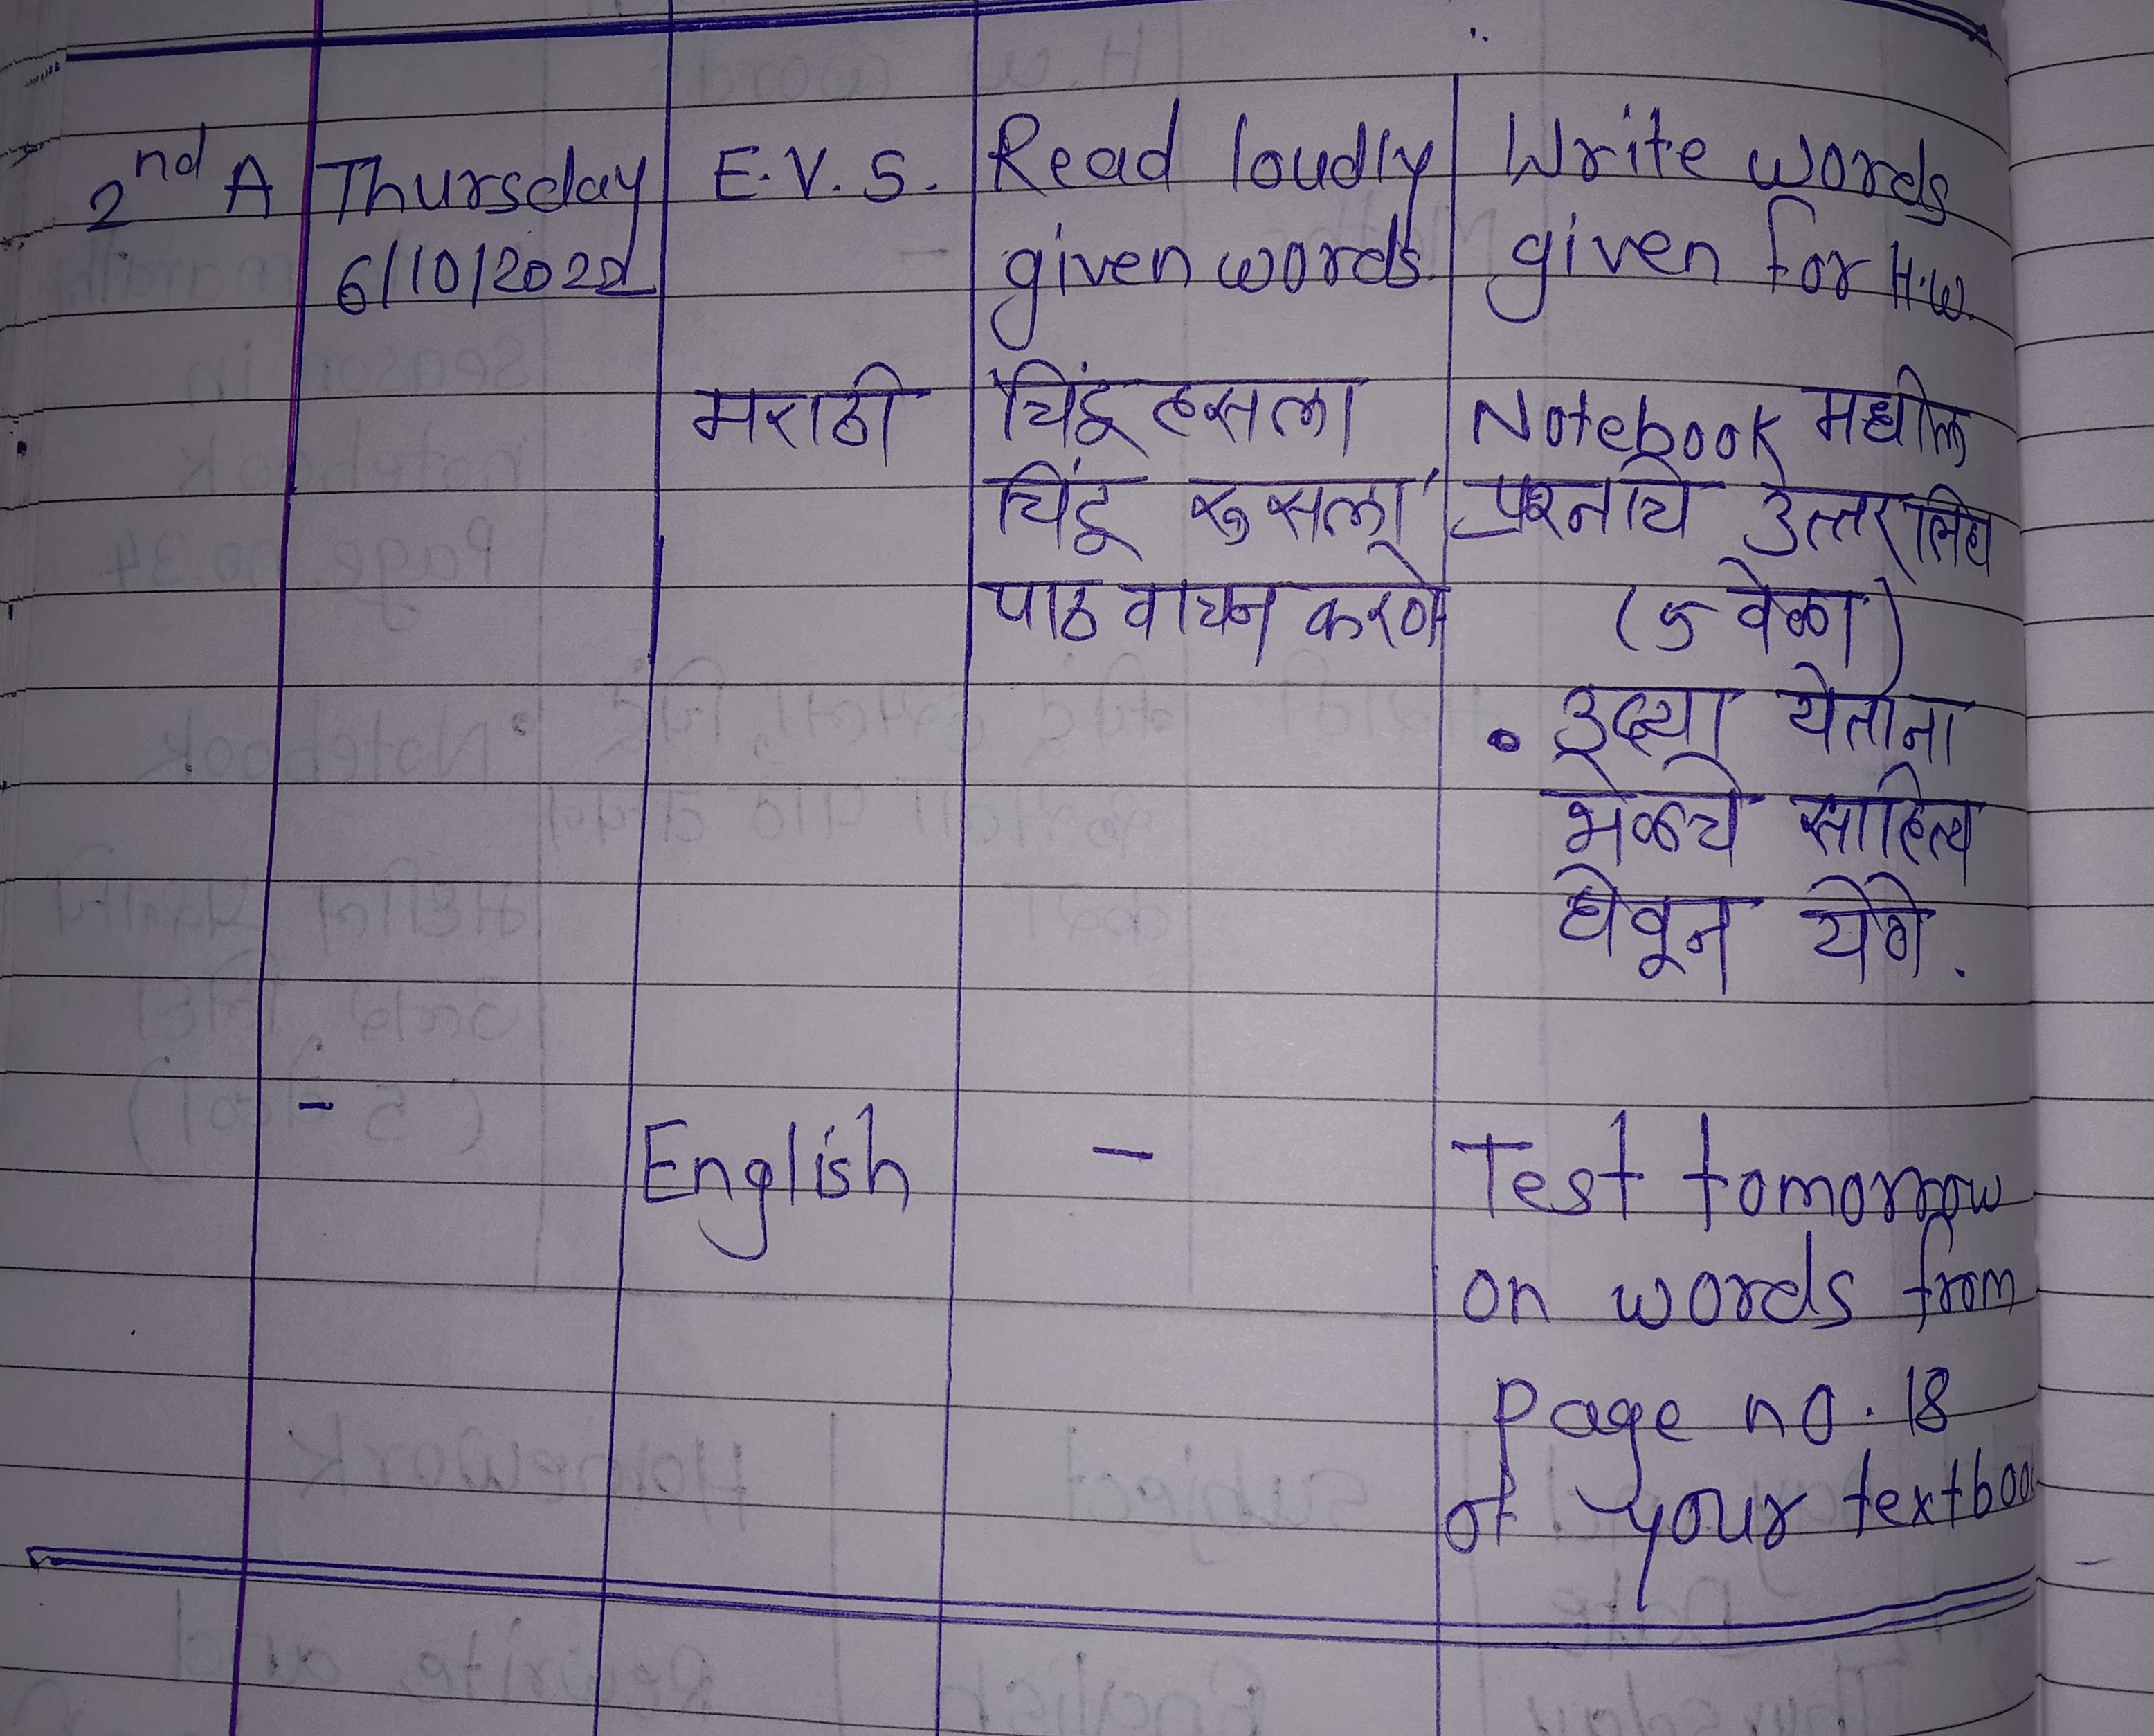 2nd A Thursday E.V.S. Read loudly Write words
6/10/2022 given words. given for H.W.
मराठी चिंटू हसला Notebook मधील
चिंटू रुसला प्रश्नाचे उत्तर लिहा
पाठ वाचन करणे (5 वेळा)
• उद्या येताना
भेळचे साहित्य
घेवून येणे.
-
English - Test tomorrow
on words from
page no. 18
of your textbook